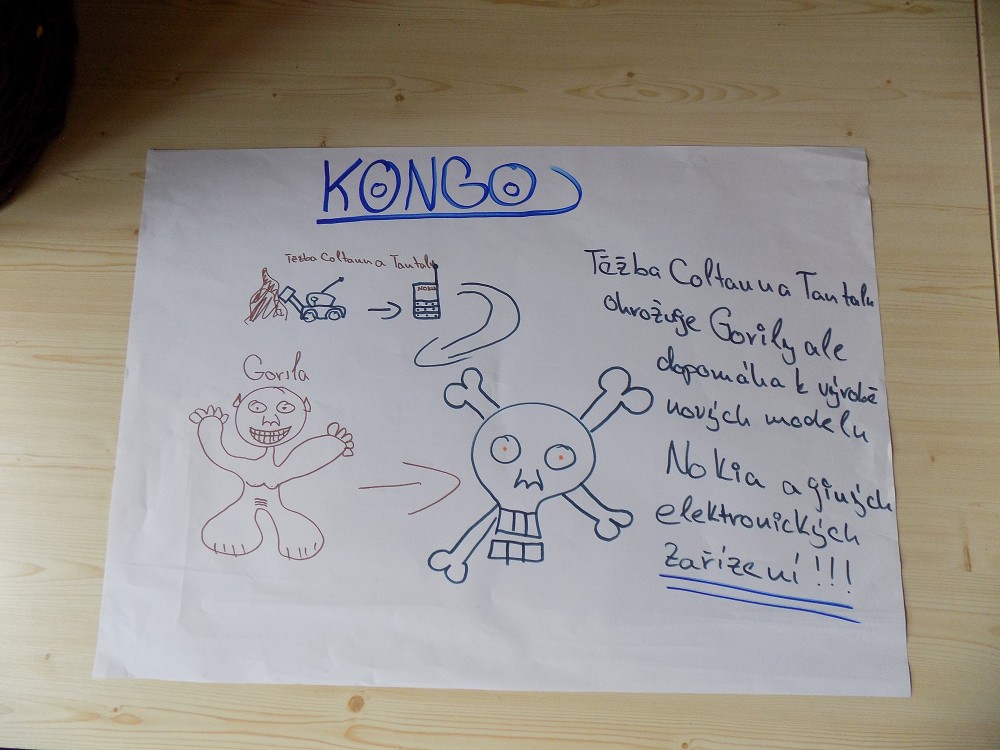 KONGO
Těžba Coltanu a Tantalu
NOKIA
Gorila
Těžba Coltanu a Tantalu
ohrožuje Gorily ale
dopomáha k výrobě
nových modelu
Nokia a giných
elektronických
zařízení!!!